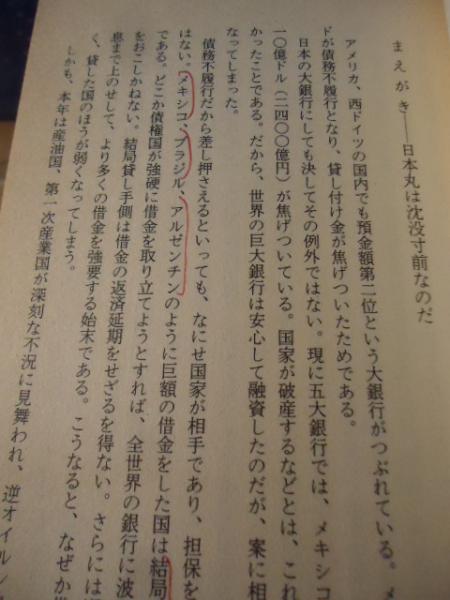 まえがき――日本丸は沈没寸前なのだ
アメリカ、西ドイツの国内でも預金額第二位という大銀行がつぶれている。メ
ドが債務不履行となり、貸し付け金が焦げついたためである。
日本の大銀行にしても決してその例外ではない。現に五大銀行では、メキシコ
一〇億ドル(二四〇〇億円)が焦げついている。国家が破産するなどとは、これ
かったことである。だから、世界の巨大銀行は安心して融資したのだが、案に相
なってしまった。
債務不履行だから差し押さえるといっても、なにせ国家が相手であり、担保を
はない。メキシコ、ブラジル、アルゼンチンのように巨額の借金をした国は結局
である。どこか債権国が強硬に借金を取り立てようとすれば、全世界の銀行に波
をおこしかねない。結局貸し手側は借金の返済延期をせざるを得ない。さらには
息まで上のせして、より多くの借金を強要する始末である。こうなると、なぜか
く、貸した国のほうが弱くなってしまう。
しかも、本年は産油国、第一次産業国が深刻な不況に見舞われ、逆オイル